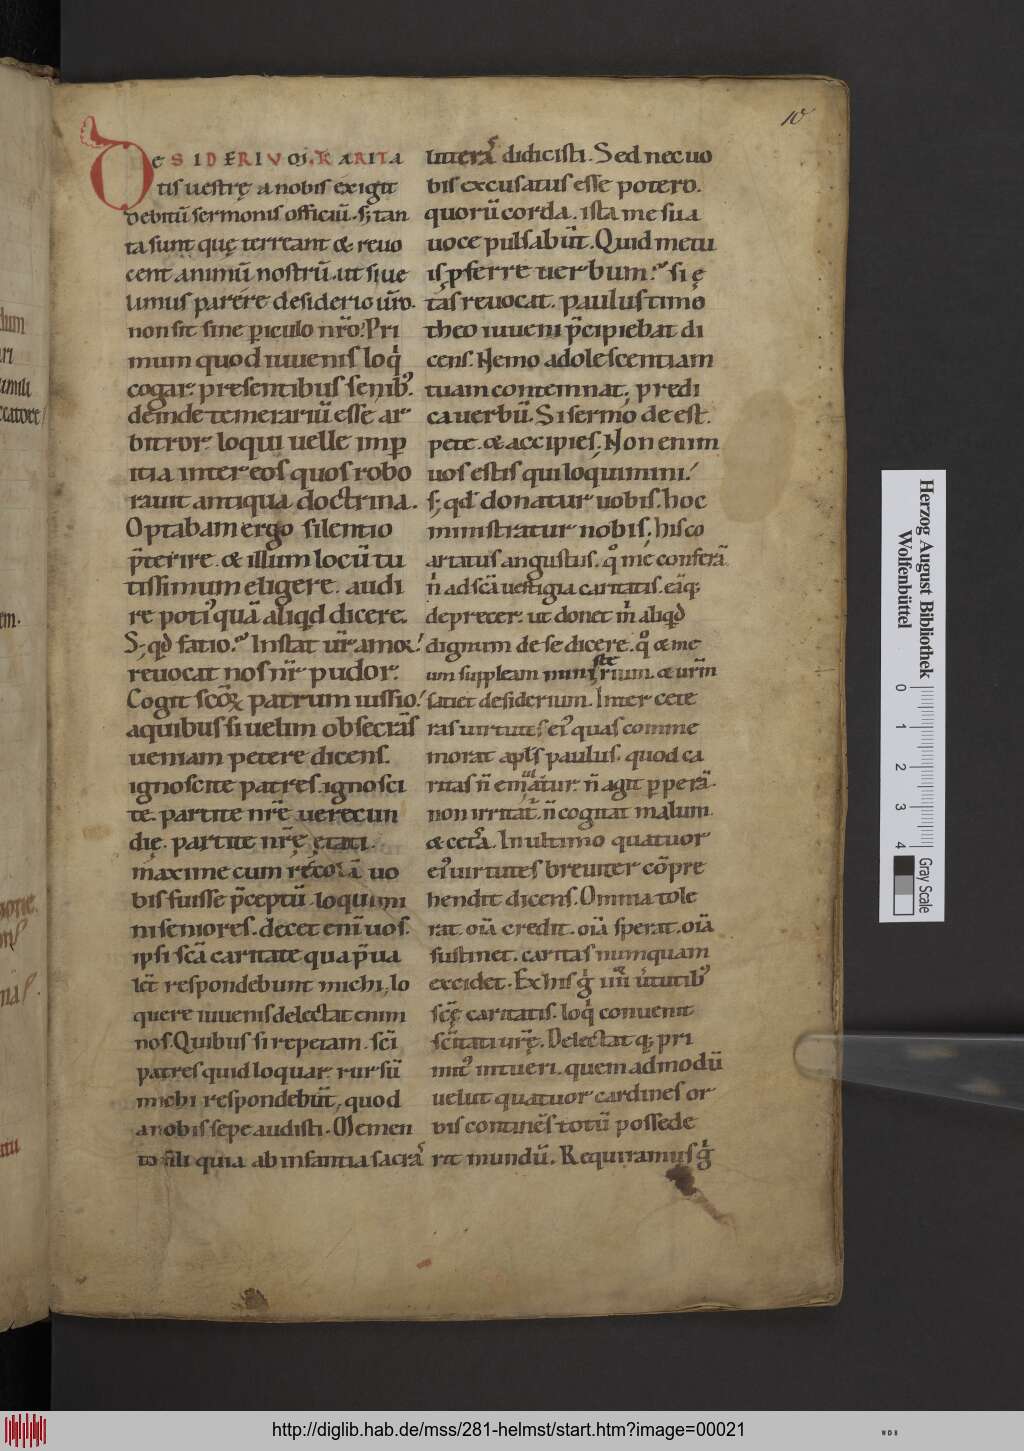 10
DESIDERIVQI. KARITA
tis uestrę a nobis exigit
debitū sermonis officiū. s; tan
ta sunt quę terreant & reuo
cent animū nostrū. ut si ue
limus parére desiderio ur̄o.
non sit sine piculo nr̄o. Pri
mum quod iuuenis loq
cogar presentibus senib;
deinde temerariū esse ar
bitror loqui uelle imp
itia inter eos quos robo
rauit antiqua doctrina.
Optabam ergo silentio
p̄terire. & illum locū tu
tissimum eligere. audi
re poti' quā aliqd dicere.
S; qd fatio? Instat ur̄ amor.
reuocat nos nr̄ pudor.
Cogit patrum iussio.
a quibus si uelim obsecrās
ueniam petere dicens.
ignoscite patres. ignosci
te. parcite nr̄e uerecun
dię. parcite nr̄ę ętati.
maxime cum uo
bis fuisse p̄ceptū. loquimi
ni seniores. decet eni uos.
ipsi scā caritate qua p̄ua
let respondebunt michi, lo
quere iuuenis delectat enim
nos. Quibus si repetam. sc̄i
patres quid loquar. rursū
michi respondebūt, quod
a nobis sepe audisti. Memen
to fili quia ab infantia sacra
litterā didicisti. Sed nec uo
bis excusatus esse potero.
quorū corda. ista me sua
uoce pulsabūt. Quid metu
is pferre uerbum? si ę
tas reuocat. paulus timo
theo iuueni p̄cipiebat di
cens. Nemo adolescentiam
tuam contemnat. predi
ca uerbū. Si sermo de est.
pete. & accipies. Non enim
uos estis qui loquimini.
s; qd donatur uobis. hoc
ministratur nobis. his co
artatus angustus. qm me conferā
n ad scā uestigia caritatis. eāq;
deprecer. ut donet m aliqd
dignum de se dicere. qo & me
um suppleam ministerium. & urm
satiet desiderium. Inter cete
ras uirtutes ei' quas comme
morat apls paulus. quod ca
ritas n̄ emulatur. n̄ agit pperā.
non irritat. n̄ cogitat malum
& cetā. In ultimo quatuor
ei' uirtutes breuiter cōpre
hendit dicens. Omnia tole
rat. oīa credit. oīa sperat. oīa
sustinet. caritas numquam
excidet. Ex his g iiii uirtutib'
sc̄ę caritatis. loq conuenit
sc̄itati ur̄ę. Delectat q; pri
mit' intueri. quem ad modū
uelut quatuor cardines or
bis continēs totū possede
rit mundū. Requiramus g
Herzog August Bibliothek
Wolfenbüttel
0 1 2 3 4
Gray Scale
http://diglib.hab.de/mss/281-helmst/start.htm?image=00021